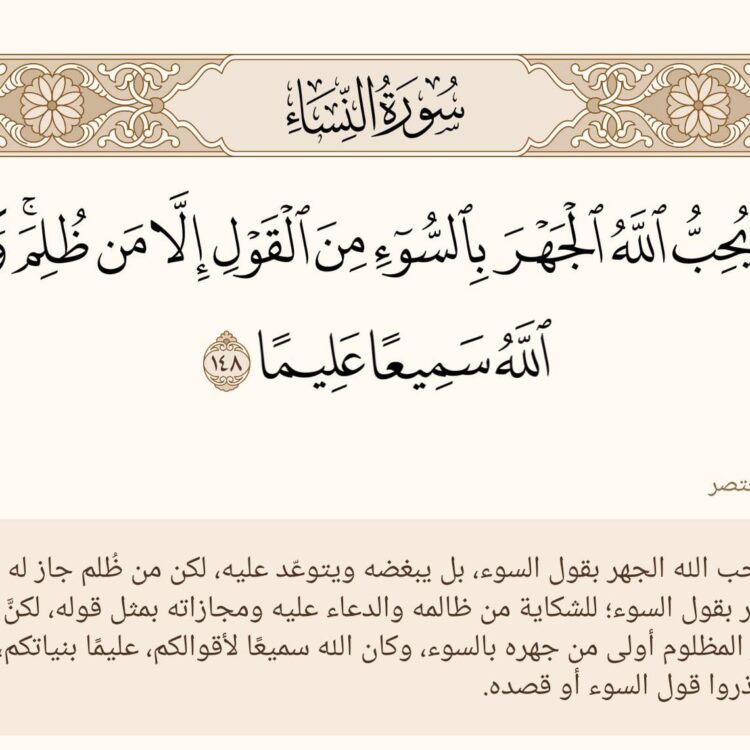 سُورَةُ النِّسَاءِ
يُحِبُّ ٱللَّهُ ٱلْجَهْرَ بِٱلسُّوٓءِ مِنَ ٱلْقَوْلِ إِلَّا مَن ظُلِمَۚ
ٱللَّهُ سَمِيعًا عَلِيمًا ١٤٨
حب الله الجهر بقول السوء، بل يبغضه ويتوعّد عليه، لكن من ظُلم جاز له
ر بقول السوء؛ للشكاية من ظالمه والدعاء عليه ومجازاته بمثل قوله، لكنَّ
المظلوم أولى من جهره بالسوء، وكان الله سميعًا لأقوالكم، عليمًا بنياتكم،
ذروا قول السوء أو قصده.